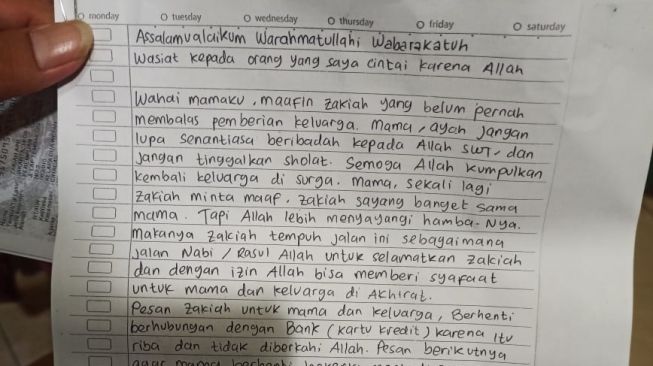 monday tuesday wednesday thursday friday saturday
Assalamualaikum Warahmatullahi Wabarakatuh
Wasiat kepada orang yang saya cintai karena Allah
Wahai mamaku, maafin Zakiah yang belum pernah
membalas pemberian keluarga. Mama, ayah jangan
lupa senantiasa beribadah kepada Allah SWT, dan
jangan tinggalkan sholat. Semoga Allah kumpulkan
kembali keluarga di surga. Mama, sekali lagi
Zakiah minta maaf. Zakiah sayang banget sama
mama. Tapi Allah lebih menyayangi hamba-Nya.
makanya zakiah tempuh jalan ini sebagaimana
jalan Nabi / Rasul Allah untuk selamatkan zakiah
dan dengan izin Allah bisa memberi syafaat
untuk mama dan keluarga di Akhirat.
Pesan Zakiah untuk mama dan keluarga, Berhenti
berhubungan dengan Bank (kartu kredit) karena itu
riba dan tidak diberkahi Allah. Pesan berikutnya